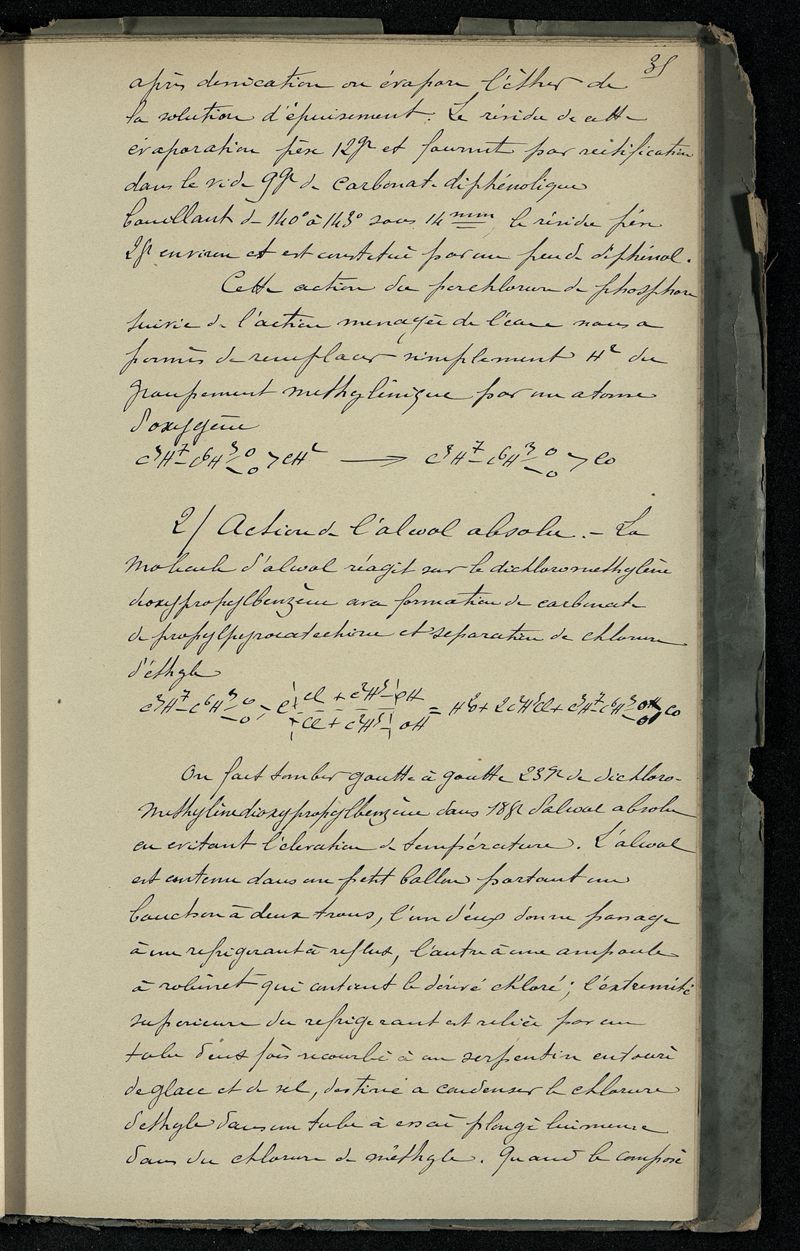 35
après dessication on évapore l'éther de
la solution d'épuisement. Le résidu de cette
évaporation pèse 12gr et fournit par rectification
dans le vide 9gr de carbonate diphénolique
bouillant de 140° à 143° sous 14 mm, le résidu pèse
2gr environ et est constitué par un peu de diphénol.
Cette action du perchlorure de phosphore
suivie de l'action menagée de l'eau nous a
permis de remplacer simplement H² du
groupement methylènique par un atome
d'oxygène
C³H⁷-C⁶H³<O O>CH² → C³H⁷-C⁶H³<O O>CO
2/ Action de l'alcool absolu. - La
molécule d'alcool réagit sur le dichloromethylène
dioxypropylbenzène avec formation de carbonate
de propylpyrocatechine et separation de chlorure
d'éthyle
C³H⁷-C⁶H³<O O>C Cl + C²H⁵-OH Cl + C²H⁵-OH = H²O + 2C²H⁵Cl + C³H⁷-C⁶H³<O O>CO
On fait tomber goutte à goutte 23gr de dichloro-
methylènedioxypropylbenzène dans 18gr d'alcool absolu
en evitant l'élevation de température. L'alcool
est contenu dans un petit ballon portant un
bouchon à deux trous, l'un d'eux donne passage
à un refrigerant à reflux, l'autre à une ampoule
à robinet qui contient le dérivé chloré; l'extremité
superieure du refrigerant est reliée par un
tube deux fois recourbé à un serpentin entouré
de glace et de sel, destiné a condenser le chlorure
d'ethyle dans un tube à essai plongé lui meme
dans du chlorure de méthyle. Quand le composé